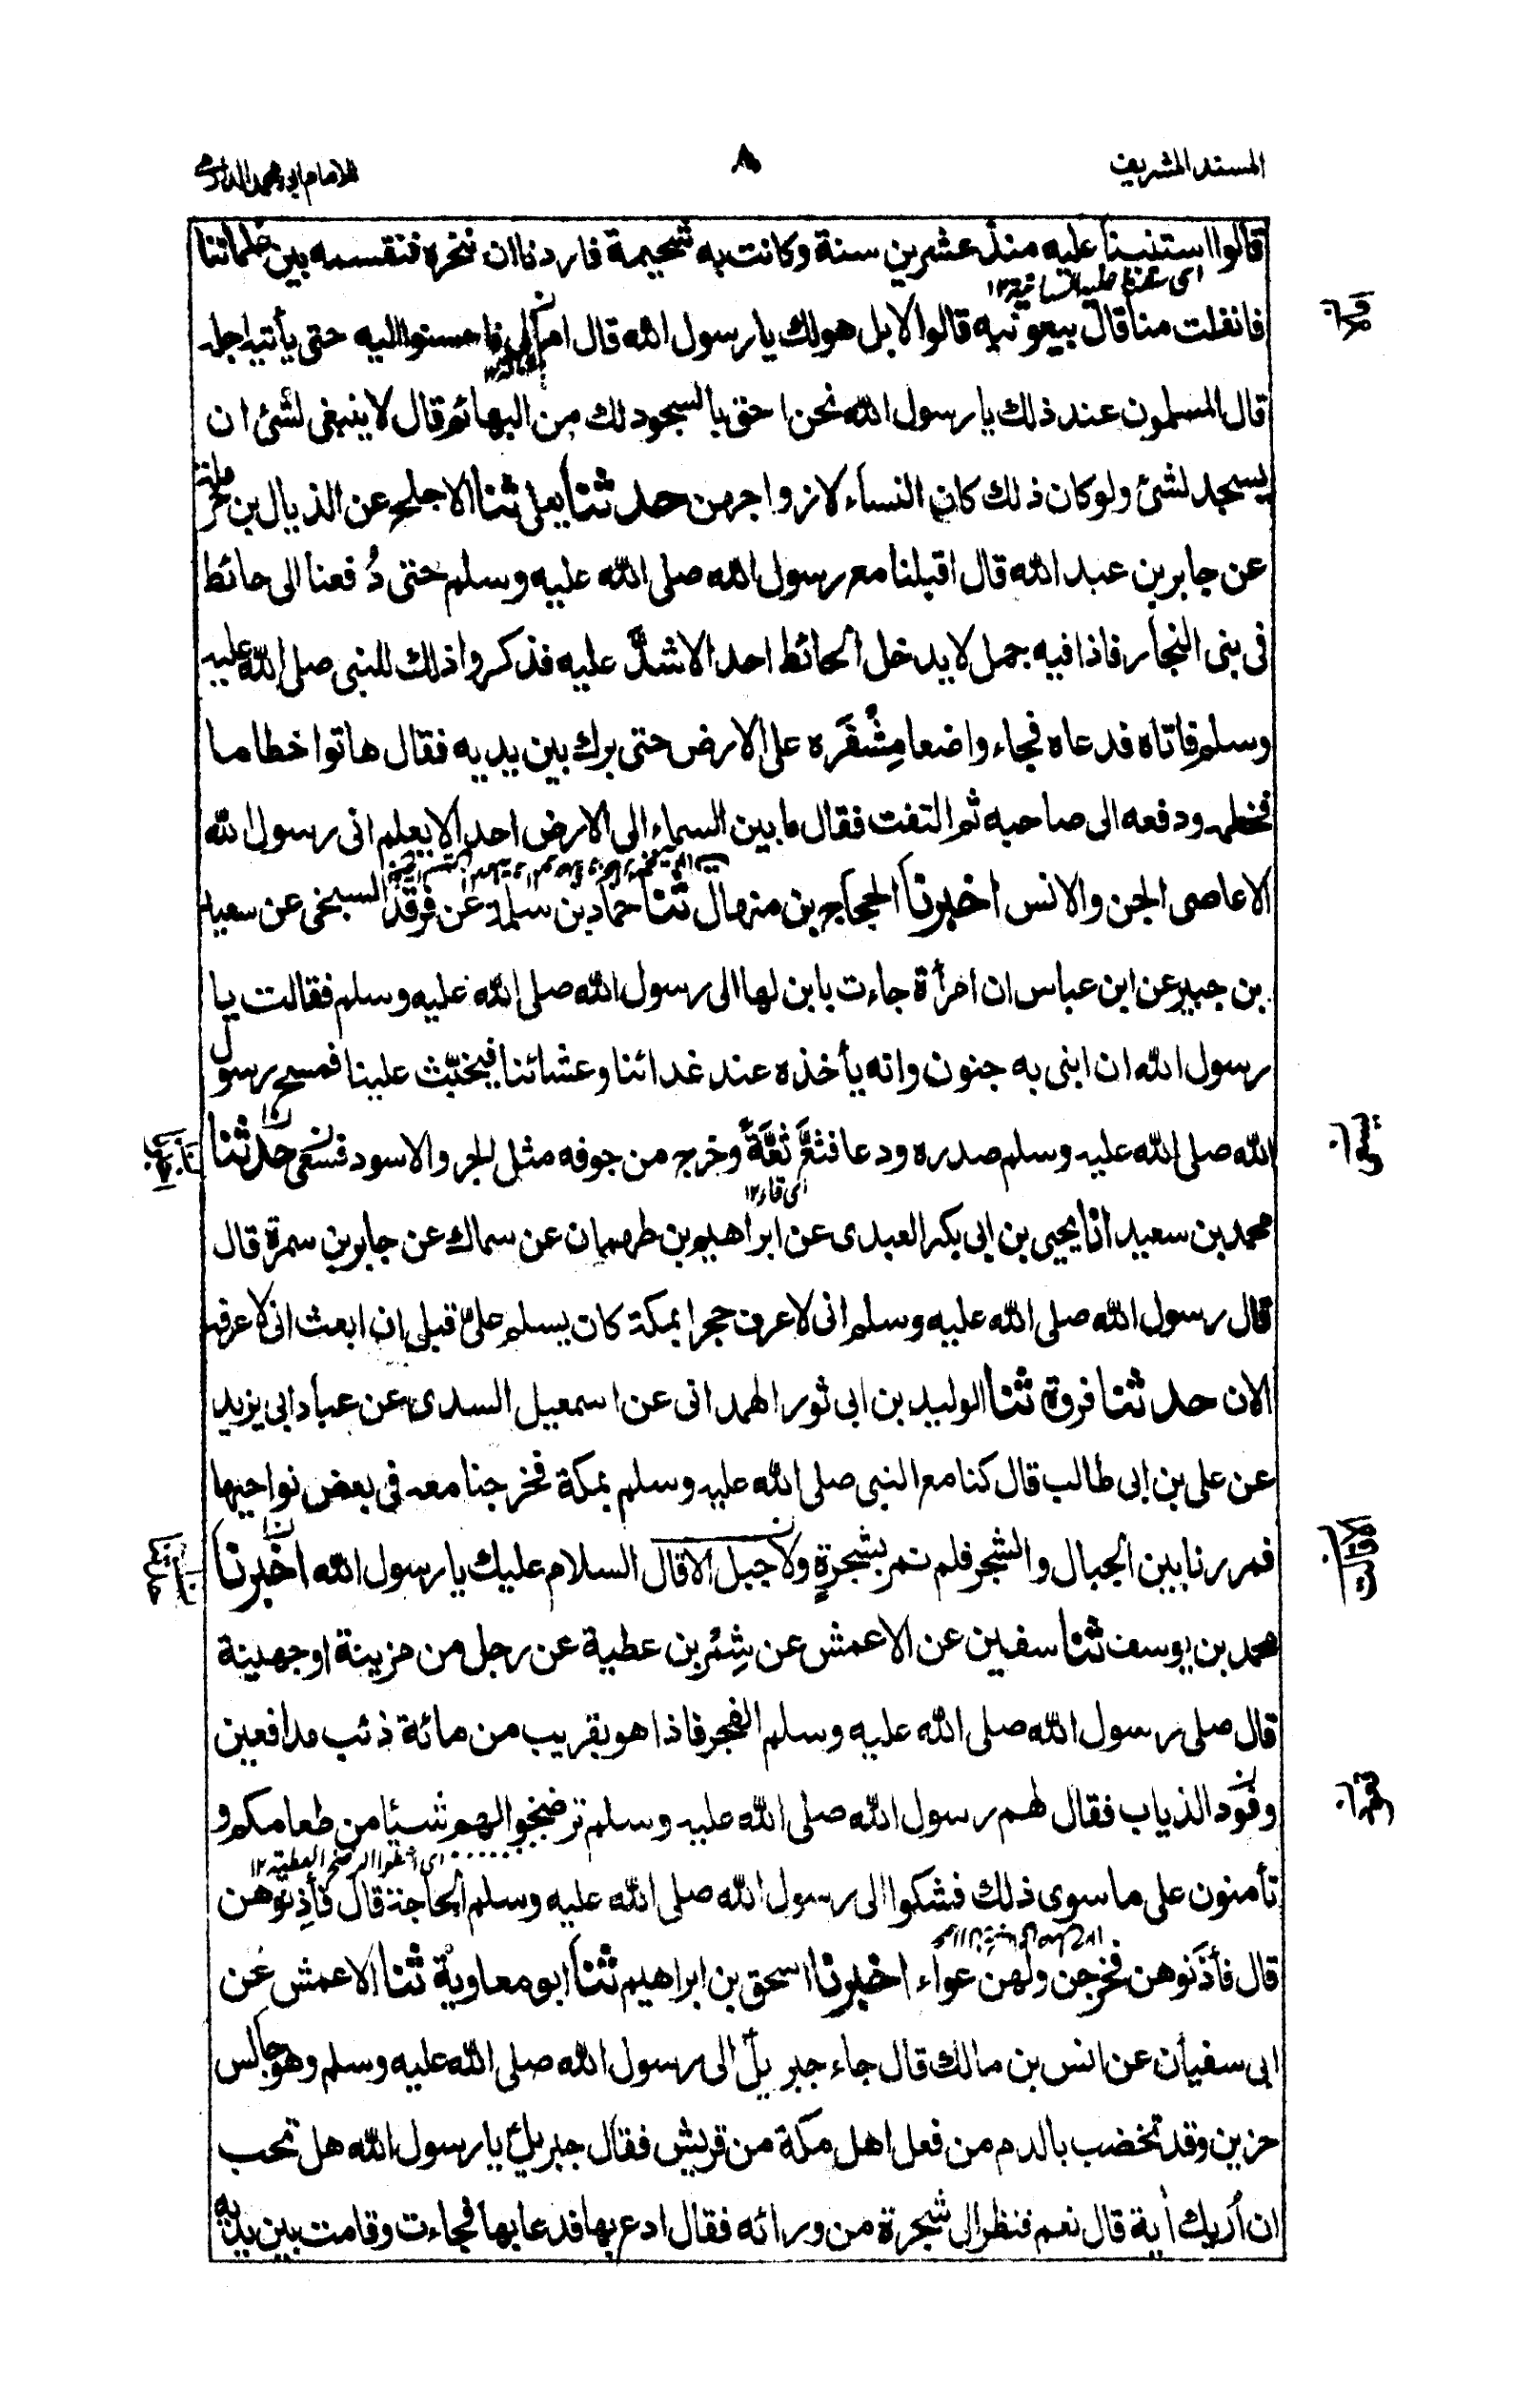 المسند الشريف
٨
للامام ابو محمد الدارمى
قالوا استنينا عليه منذ عشرين سنة وكانت به شحيمة فاردنا ان ننحره فنقسمه بين غلماننا
فانفلت منا قال بيعونيه قالوا لا بل هو لك يا رسول الله قال اما لى فاحسنوا اليه حتى يأتيه اجله
قال المسلمون عند ذلك يا رسول الله نحن احق بالسجود لك من البهائم قال لا ينبغى لشئ ان
يسجد لشئ ولو كان ذلك كان النساء لازواجهن حدثنا يعلى ثنا الاجلح عن الذيال بن حرملة
عن جابر بن عبد الله قال اقبلنا مع رسول الله صلى الله عليه وسلم حتى دُفعنا الى حائط
فى بنى النجار فاذا فيه جمل لا يدخل الحائط احد الا شدَّ عليه فذكروا ذلك للنبى صلى الله عليه
وسلم فاتاه فدعاه فجاء واضعا مِشْفَره على الارض حتى برك بين يديه فقال هاتوا خطاما
فخطمه ودفعه الى صاحبه ثم التفت فقال ما بين السماء الى الارض احد الا يعلم انى رسول الله
الا عاصى الجن والانس اخبرنا الحجاج بن منهال ثنا حماد بن سلمة عن فرقد السبخى عن سعيد
بن جبير عن ابن عباس ان امرأة جاءت بابن لها الى رسول الله صلى الله عليه وسلم فقالت يا
رسول الله ان ابنى به جنون وانه يأخذه عند غدائنا وعشائنا فيخبّث علينا فمسح رسول
الله صلى الله عليه وسلم صدره ودعا فثعَّ ثعَّةً وخرج من جوفه مثل الجرو الاسود فسعى حدثنا
اى قاء ١٢
محمد بن سعيد انا يحيى بن ابى بكر العبدى عن ابراهيم بن طهمان عن سماك عن جابر بن سمرة قال
قال رسول الله صلى الله عليه وسلم انى لاعرف حجرا بمكة كان يسلم علىّ قبل ان ابعث انى لاعرفه
الان حدثنا فروة ثنا الوليد بن ابى ثور الهمدانى عن اسمعيل السدى عن عباد ابى يزيد
عن على بن ابى طالب قال كنا مع النبى صلى الله عليه وسلم بمكة فخرجنا معه فى بعض نواحيها
فمررنا بين الجبال والشجر فلم نمر بشجرةٍ ولا جبل الا قال السلام عليك يا رسول الله اخبرنا
محمد بن يوسف ثنا سفين عن الاعمش عن شِمْر بن عطية عن رجل من مزينة او جهينة
قال صلى رسول الله صلى الله عليه وسلم الفجر فاذا هو بقريب من مائة ذئب مدافعين
وفود الذياب فقال لهم رسول الله صلى الله عليه وسلم ترضخوا لهم شيئا من طعامكم و
تأمنون على ما سوى ذلك فشكوا الى رسول الله صلى الله عليه وسلم الحاجة قال فأذِنوهن
قال فأذَنوهن فخرجن ولهن عواء اخبرنا اسحق بن ابراهيم ثنا ابو معاوية ثنا الاعمش عن
ابى سفيان عن انس بن مالك قال جاء جبريل الى رسول الله صلى الله عليه وسلم وهو جالس
حزين وقد تخضب بالدم من فعل اهل مكة من قريش فقال جبريل يا رسول الله هل تحب
ان أُريك اية قال نعم فنظر الى شجرة من ورائه فقال ادع بها فدعا بها فجاءت وقامت بين يديه